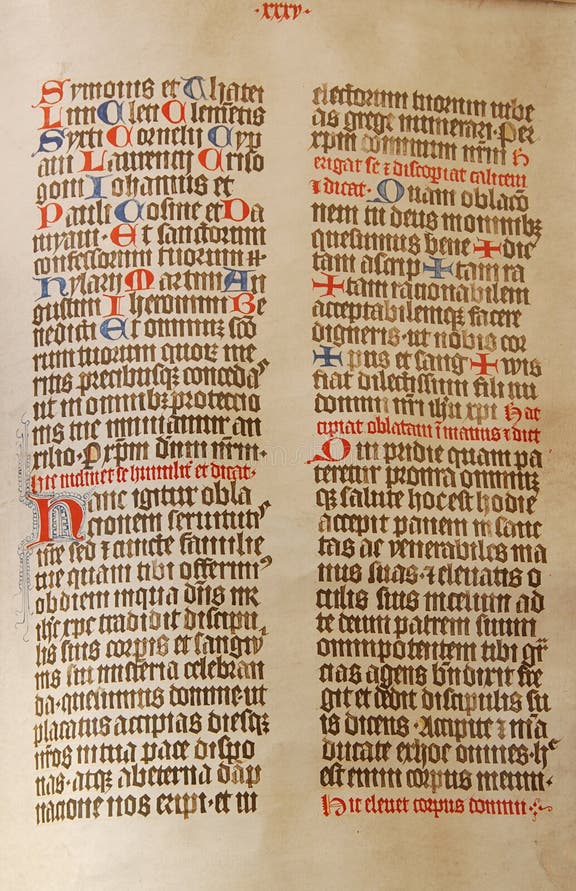 ·xxxv·
Symonis et Thatei
Lini Cleti Clemētis
Sixti Cornelij Cyp
ani Laurencij Criso
goni Iohannis et
Pauli Cosme et Da
myani· Et sanctorum
confessorum tuorum
hylarij Martini Au
gustini Iheronimi Be
nedicti Et omniuʒ scō
rum tuorum quorʒ me
ritis precibusqʒ concedas
ut in omnibʒ protectio
nis tue muniamur au
xilio· P xpm dnm nrm·
hic inclinet se humilit et dicat·
Hanc igitur obla
tionem seruitutis
nr̄e sed ⁊ cuncte familie
tue quam tibi offerim9
ob diem in qua dn̄s nr̄
ihc xpc tradidit discipu
lis suis corpis et sangīs
sui misteria celebran
da· quesumus domine· ut
placatus accipias diesqʒ
nr̄os in tua pace dispo
nas· atqʒ ab eterna dāp
natione nos eripi· et in
electorum tuorum iube
as grege numerari· Per
xpm dominum nrm H
erigat se ⁊ discopiat calicem
⁊ dicat· Quam oblacō
nem tu deus in omnibʒ
quesumus bene ✠ dic
tam ascrip ✠ tam ra
✠ tam racionabilem
acceptabilemqʒ facere
digneris· ut nobis cor
✠ pus et sang ✠ wis
fiat dilectissimi filij tui
domini nr̄i ihu xpi Hac
cipiat oblatam ī manus ⁊ dict
Qui pridie quam pa
teretur pro nr̄a omniūʒ
qʒ salute hoc est hodie
accepit panem in sanc
tas ac venerabiles ma
nus suas· ⁊ eleuatis o
culis suis in celum ad
te deum patrem suum
omnipotentem tibi gr̄
cias agens bn̄dixit fre
git et dedit discipulis su
is dicens· Accipite ⁊ mā
ducate ex hoc omnes· hc
est enim corpus meum·
Hic eleuet corpus domini·